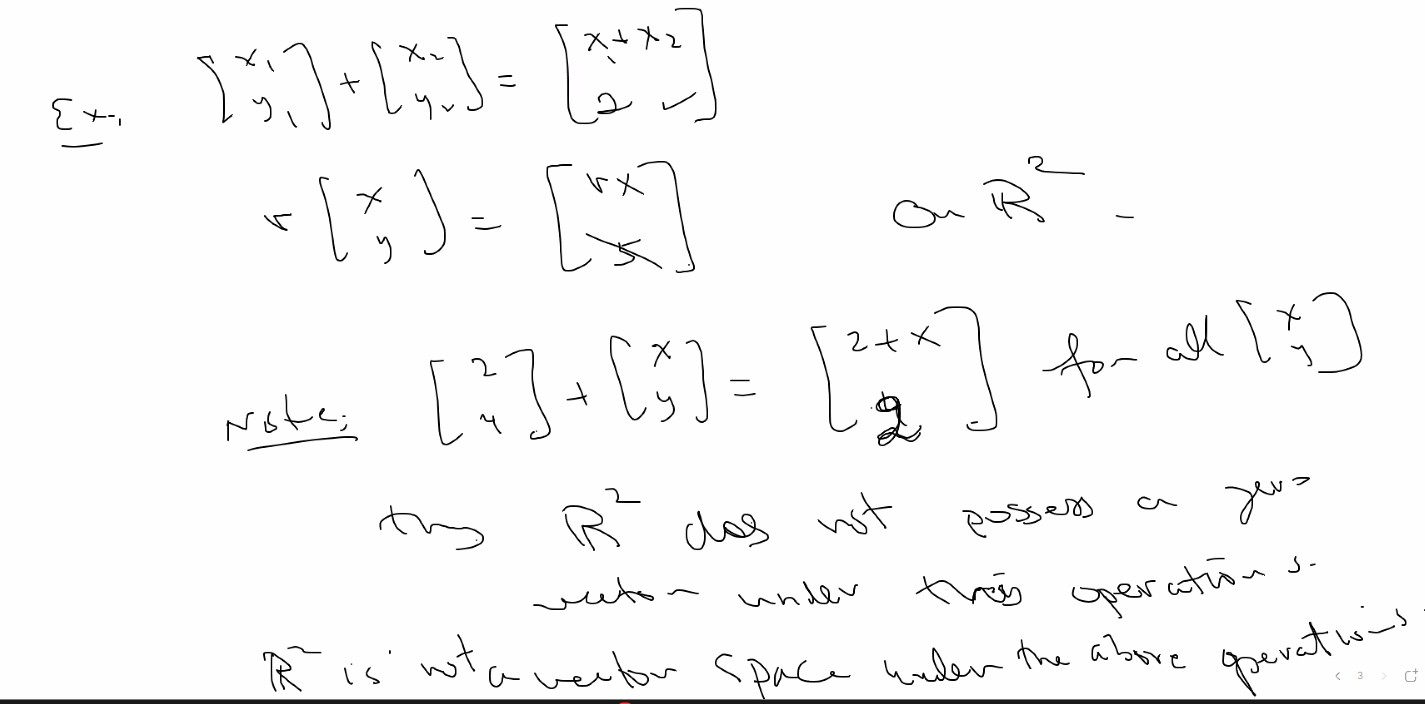 Ex. [x₁ y₁] + [x₂ y₂] = [x₁ + x₂ 2 ✓]
r [x y] = [rx 5] on ℝ²
Note: [2 4] + [x y] = [2 + x 2] for all [x y]
thus ℝ² does not possess a zero
vector under this operations.
ℝ² is not a vector space under the above operations.
3